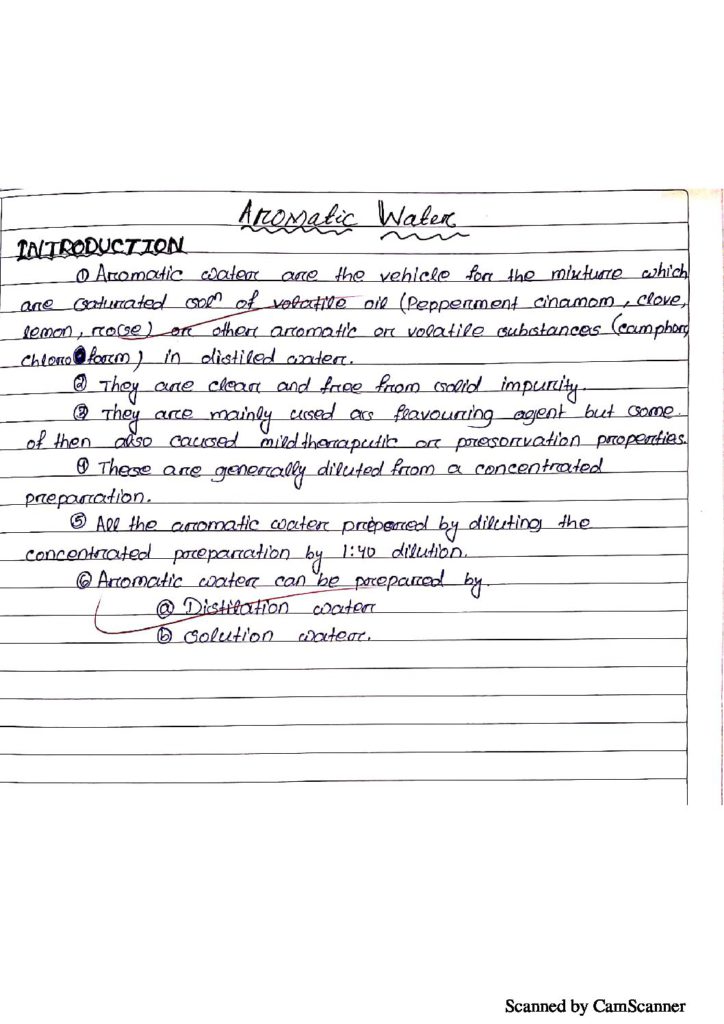 Aromatic Water
INTRODUCTION
① Aromatic water are the vehicle for the mixture which
are saturated solⁿ of volatile oil (Pepperment cinamom, clove,
lemon, rose) or other aromatic or volatile substances (camphor,
chloroform) in distiled water.
② They are clear and free from solid impurity.
③ They are mainly used as flavouring agent but some
of then also caused mild theraputic or presorvation properties.
④ These are generally diluted from a concentrated
preparation.
⑤ All the aromatic water prepared by diluting the
concentrated preparation by 1:40 dilution.
⑥ Aromatic water can be prepared by.
ⓐ Distilation water
ⓑ Solution water.
Scanned by CamScanner